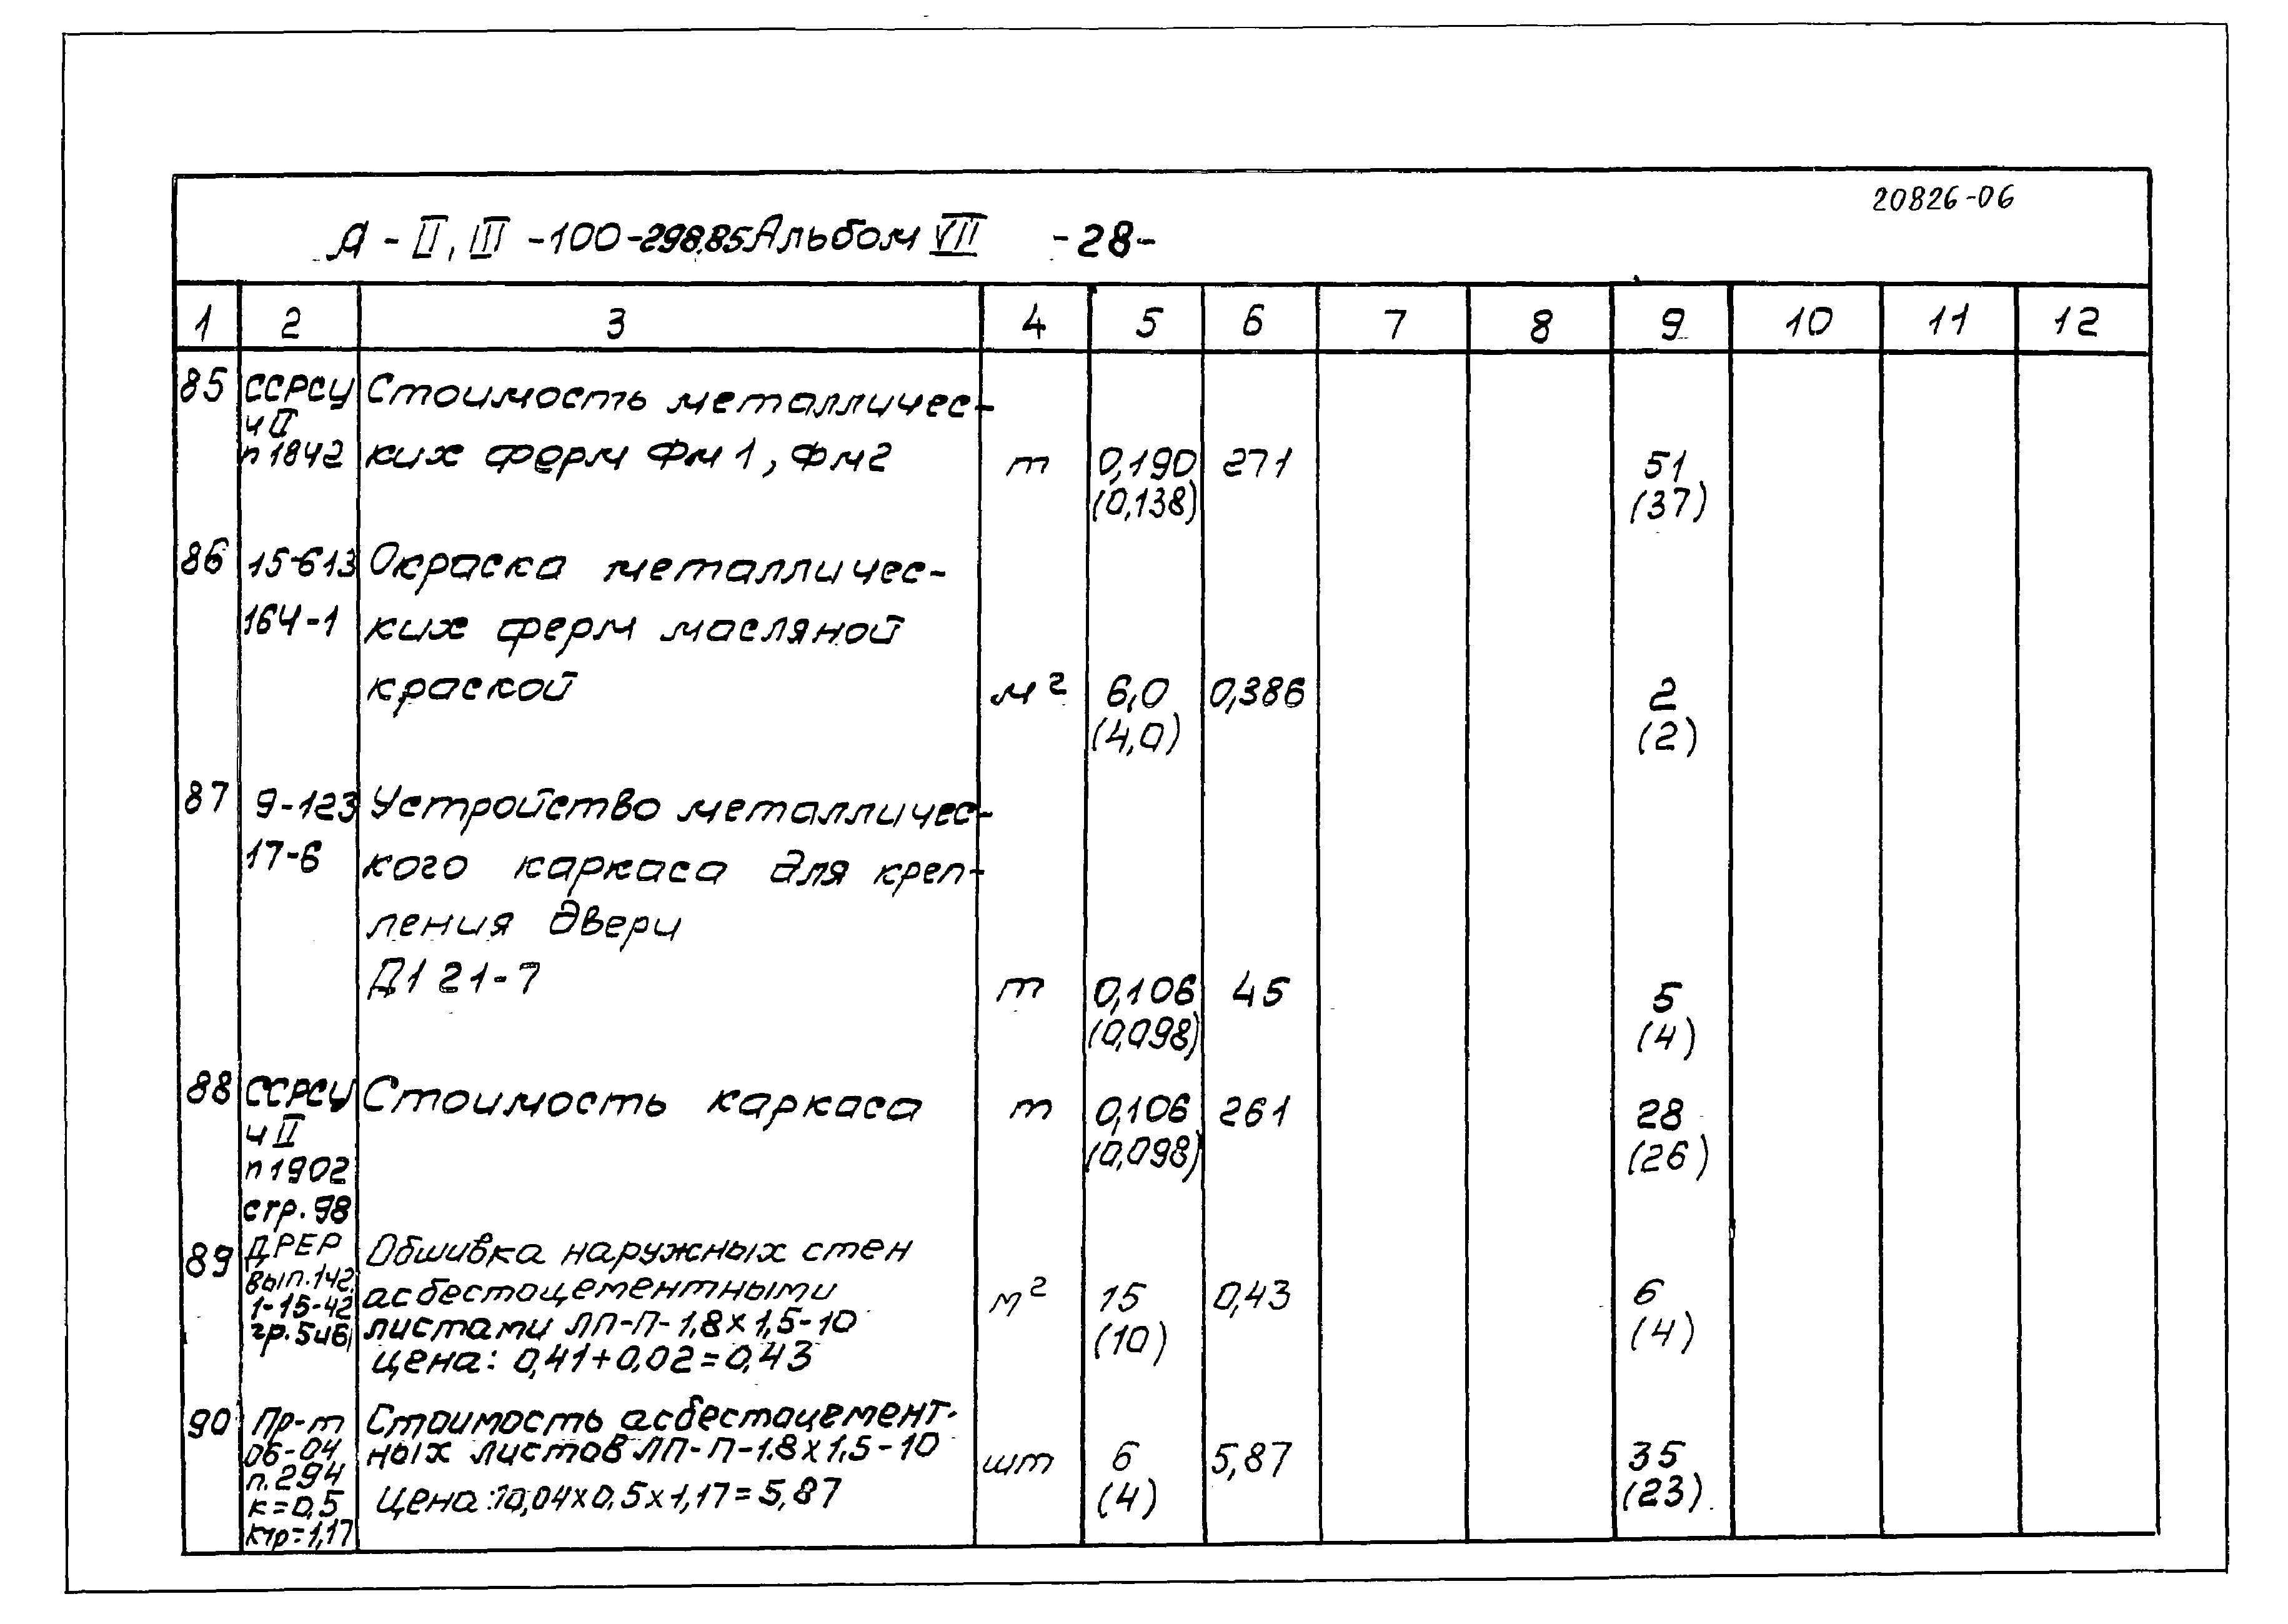 20826-06
А - II, III -100-298.85 Альбом VII -28-
1 2 3 4 5 6 7 8 9 10 11 12
85 ССРСУ Стоимость металличес-
ч II
п 1842 ких ферм Фм 1, Фм2 т 0,190 271 51
(0,138) (37)
86 15-613 Окраска металличес-
164-1 ких ферм масляной
краской м² 6,0 0,386 2
(4,0) (2)
87 9-123 Устройство металличес-
17-6 кого каркаса для креп-
ления двери
Д1 21-7 т 0,106 45 5
(0,098) (4)
88 ССРСУ Стоимость каркаса т 0,106 261 28
ч II (0,098) (26)
п 1902
стр. 98
89 ДРЕР Обшивка наружных стен
вып. 142 асбестоцементными м² 15 0,43 6
1-15-42 листами ЛП-П-1,8х1,5-10 (10) (4)
гр. 5и6 цена: 0,41+0,02=0,43
90 Пр-т Стоимость асбестоцемент-
06-04 ных листов ЛП-П-1.8х1,5-10 шт 6 5,87 35
п. 294 (4) (23)
к=0,5 Цена: 10,04х0,5х1,17=5,87
ктр=1,17